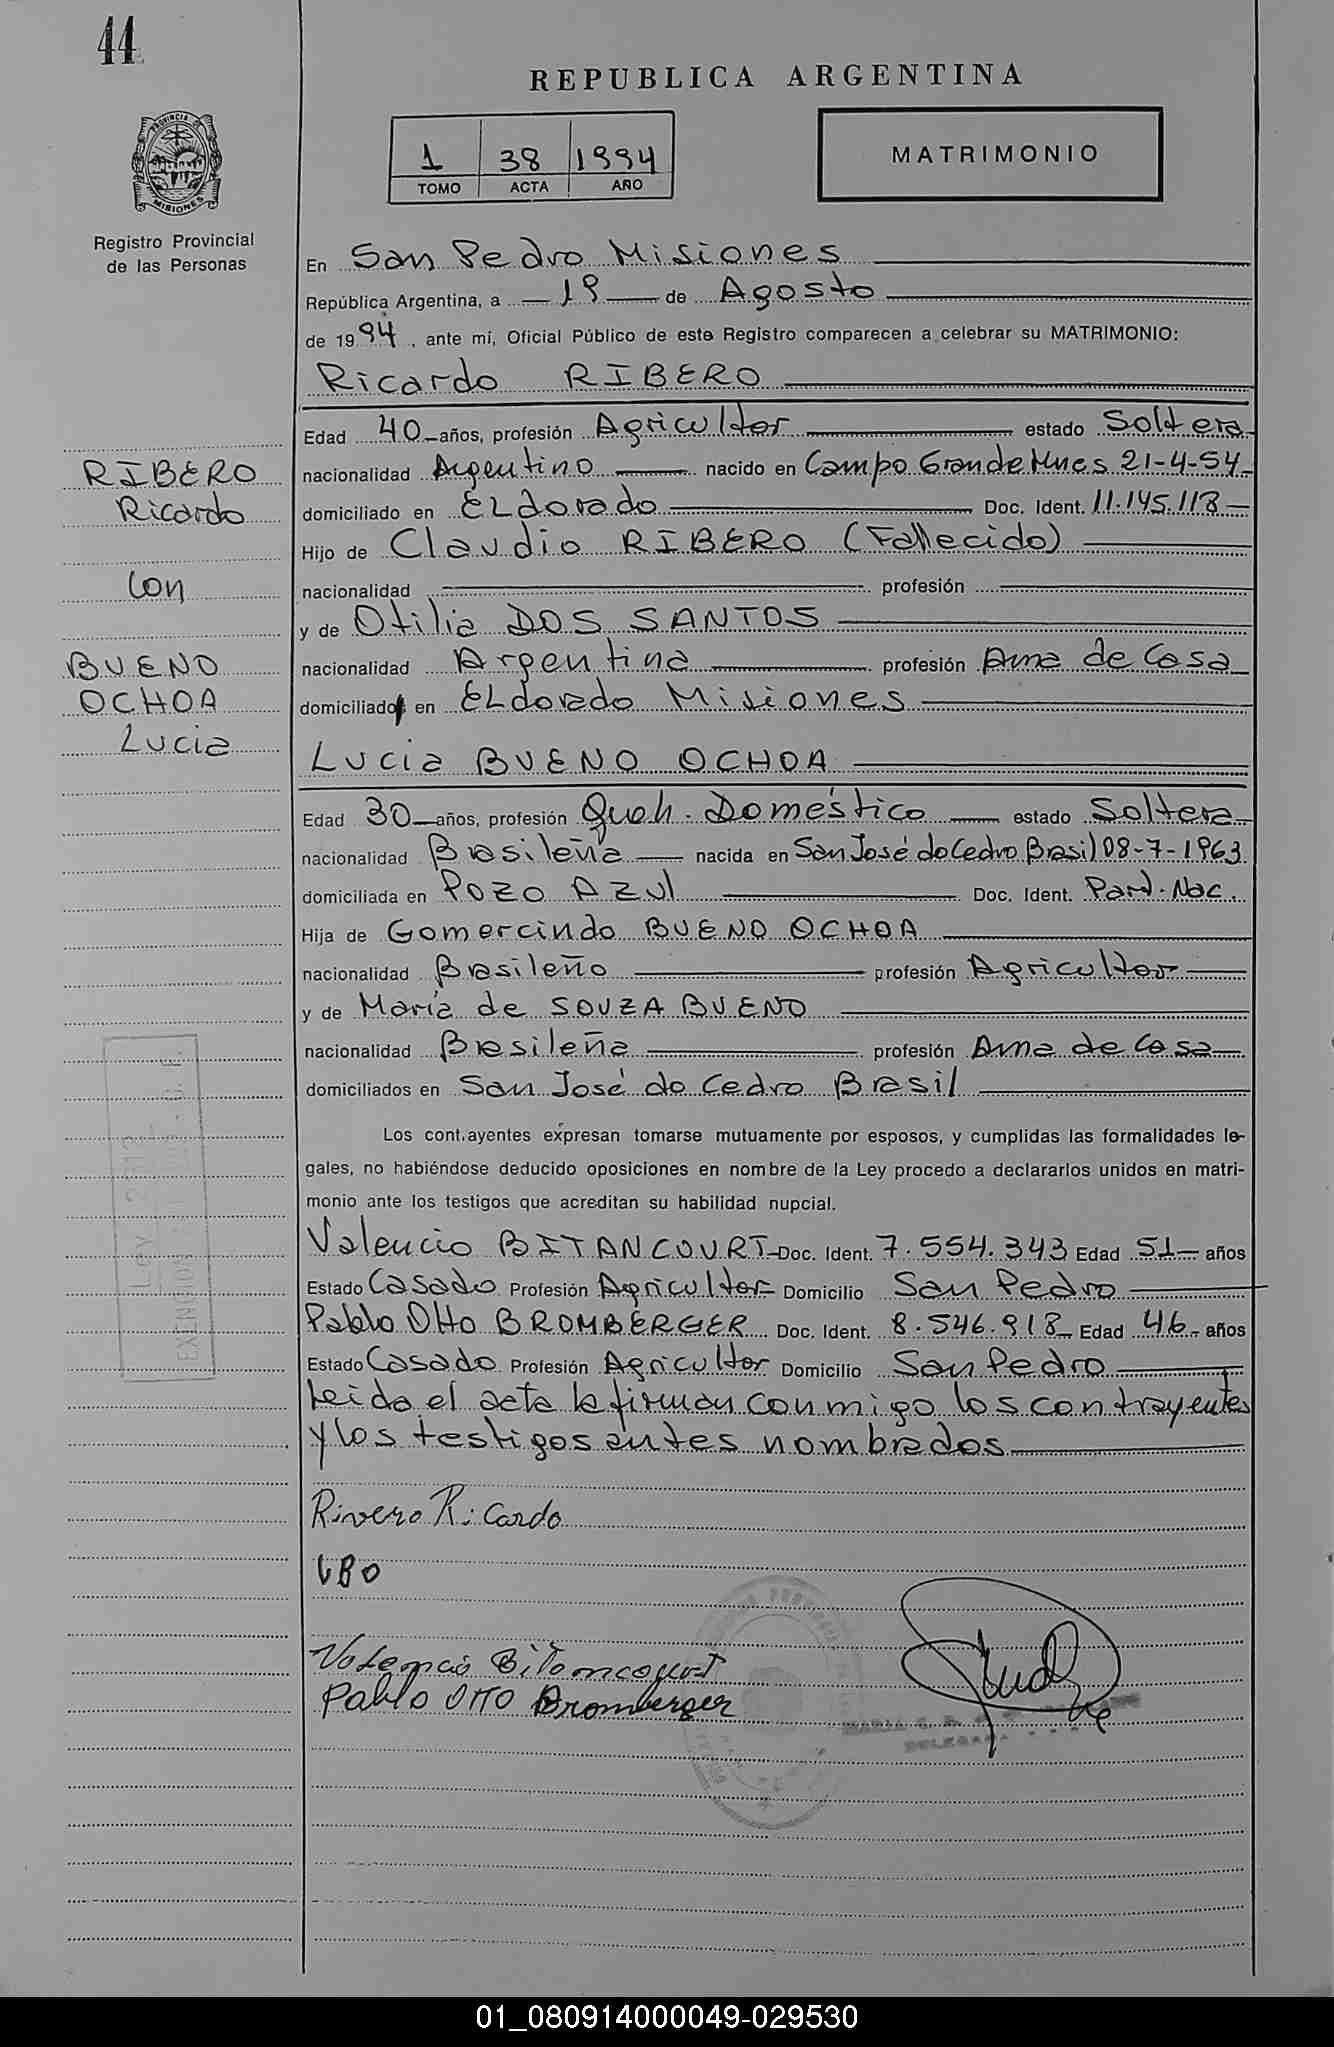 44
REPUBLICA ARGENTINA
1 38 1994
TOMO ACTA AÑO
MATRIMONIO
PROVINCIA
MISIONES
Registro Provincial
de las Personas
En San Pedro Misiones
República Argentina, a 19 de Agosto
de 1994, ante mí, Oficial Público de este Registro comparecen a celebrar su MATRIMONIO:
Ricardo RIBERO
Edad 40 años, profesión Agricultor estado Soltero
nacionalidad Argentino nacido en Campo Grande Mnes 21-4-54
domiciliado en ELdorado Doc. Ident. 11.145.118
Hijo de Claudio RIBERO (Fallecido)
nacionalidad profesión
y de Otilia DOS SANTOS
nacionalidad Argentina profesión Ama de Casa
domiciliado en ELdorado Misiones
RIBERO
Ricardo
Con
BUENO
OCHOA
Lucia
Lucia BUENO OCHOA
Edad 30 años, profesión Queh. Doméstico estado Soltera
nacionalidad Brasileña nacida en San José do Cedro Brasil 08-7-1963
domiciliada en Pozo Azul Doc. Ident. Part. Nac.
Hija de Gomercindo BUENO OCHOA
nacionalidad Brasileño profesión Agricultor
y de María de SOUZA BUENO
nacionalidad Brasileña profesión Ama de Casa
domiciliados en San José do Cedro Brasil
Los cont.ayentes expresan tomarse mutuamente por esposos, y cumplidas las formalidades le-
gales, no habiéndose deducido oposiciones en nombre de la Ley procedo a declararlos unidos en matri-
monio ante los testigos que acreditan su habilidad nupcial.
Valencio BITANCOURT Doc. Ident. 7.554.343 Edad 51 años
Estado Casado Profesión Agricultor Domicilio San Pedro
Pablo Otto BROMBERGER Doc. Ident. 8.546.918 Edad 46 años
Estado Casado Profesión Agricultor Domicilio San Pedro
Leida el acta la firman conmigo los contrayentes
y los testigos antes nombrados
Ley
Rivero Ricardo
LBO
Valencio Bitancourt
Pablo Otto Bromberger
MARIA
01_080914000049-029530